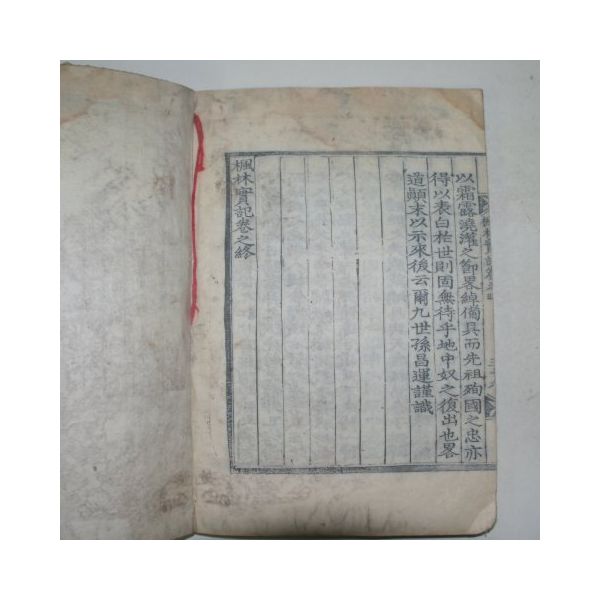 以霜露澆灌之節畧綽備具而先祖殉國之忠亦
得以表白於世則固無待乎地中奴之復出也畧
道顚末以示來後云爾九世孫昌運謹識
楓林實記卷之終